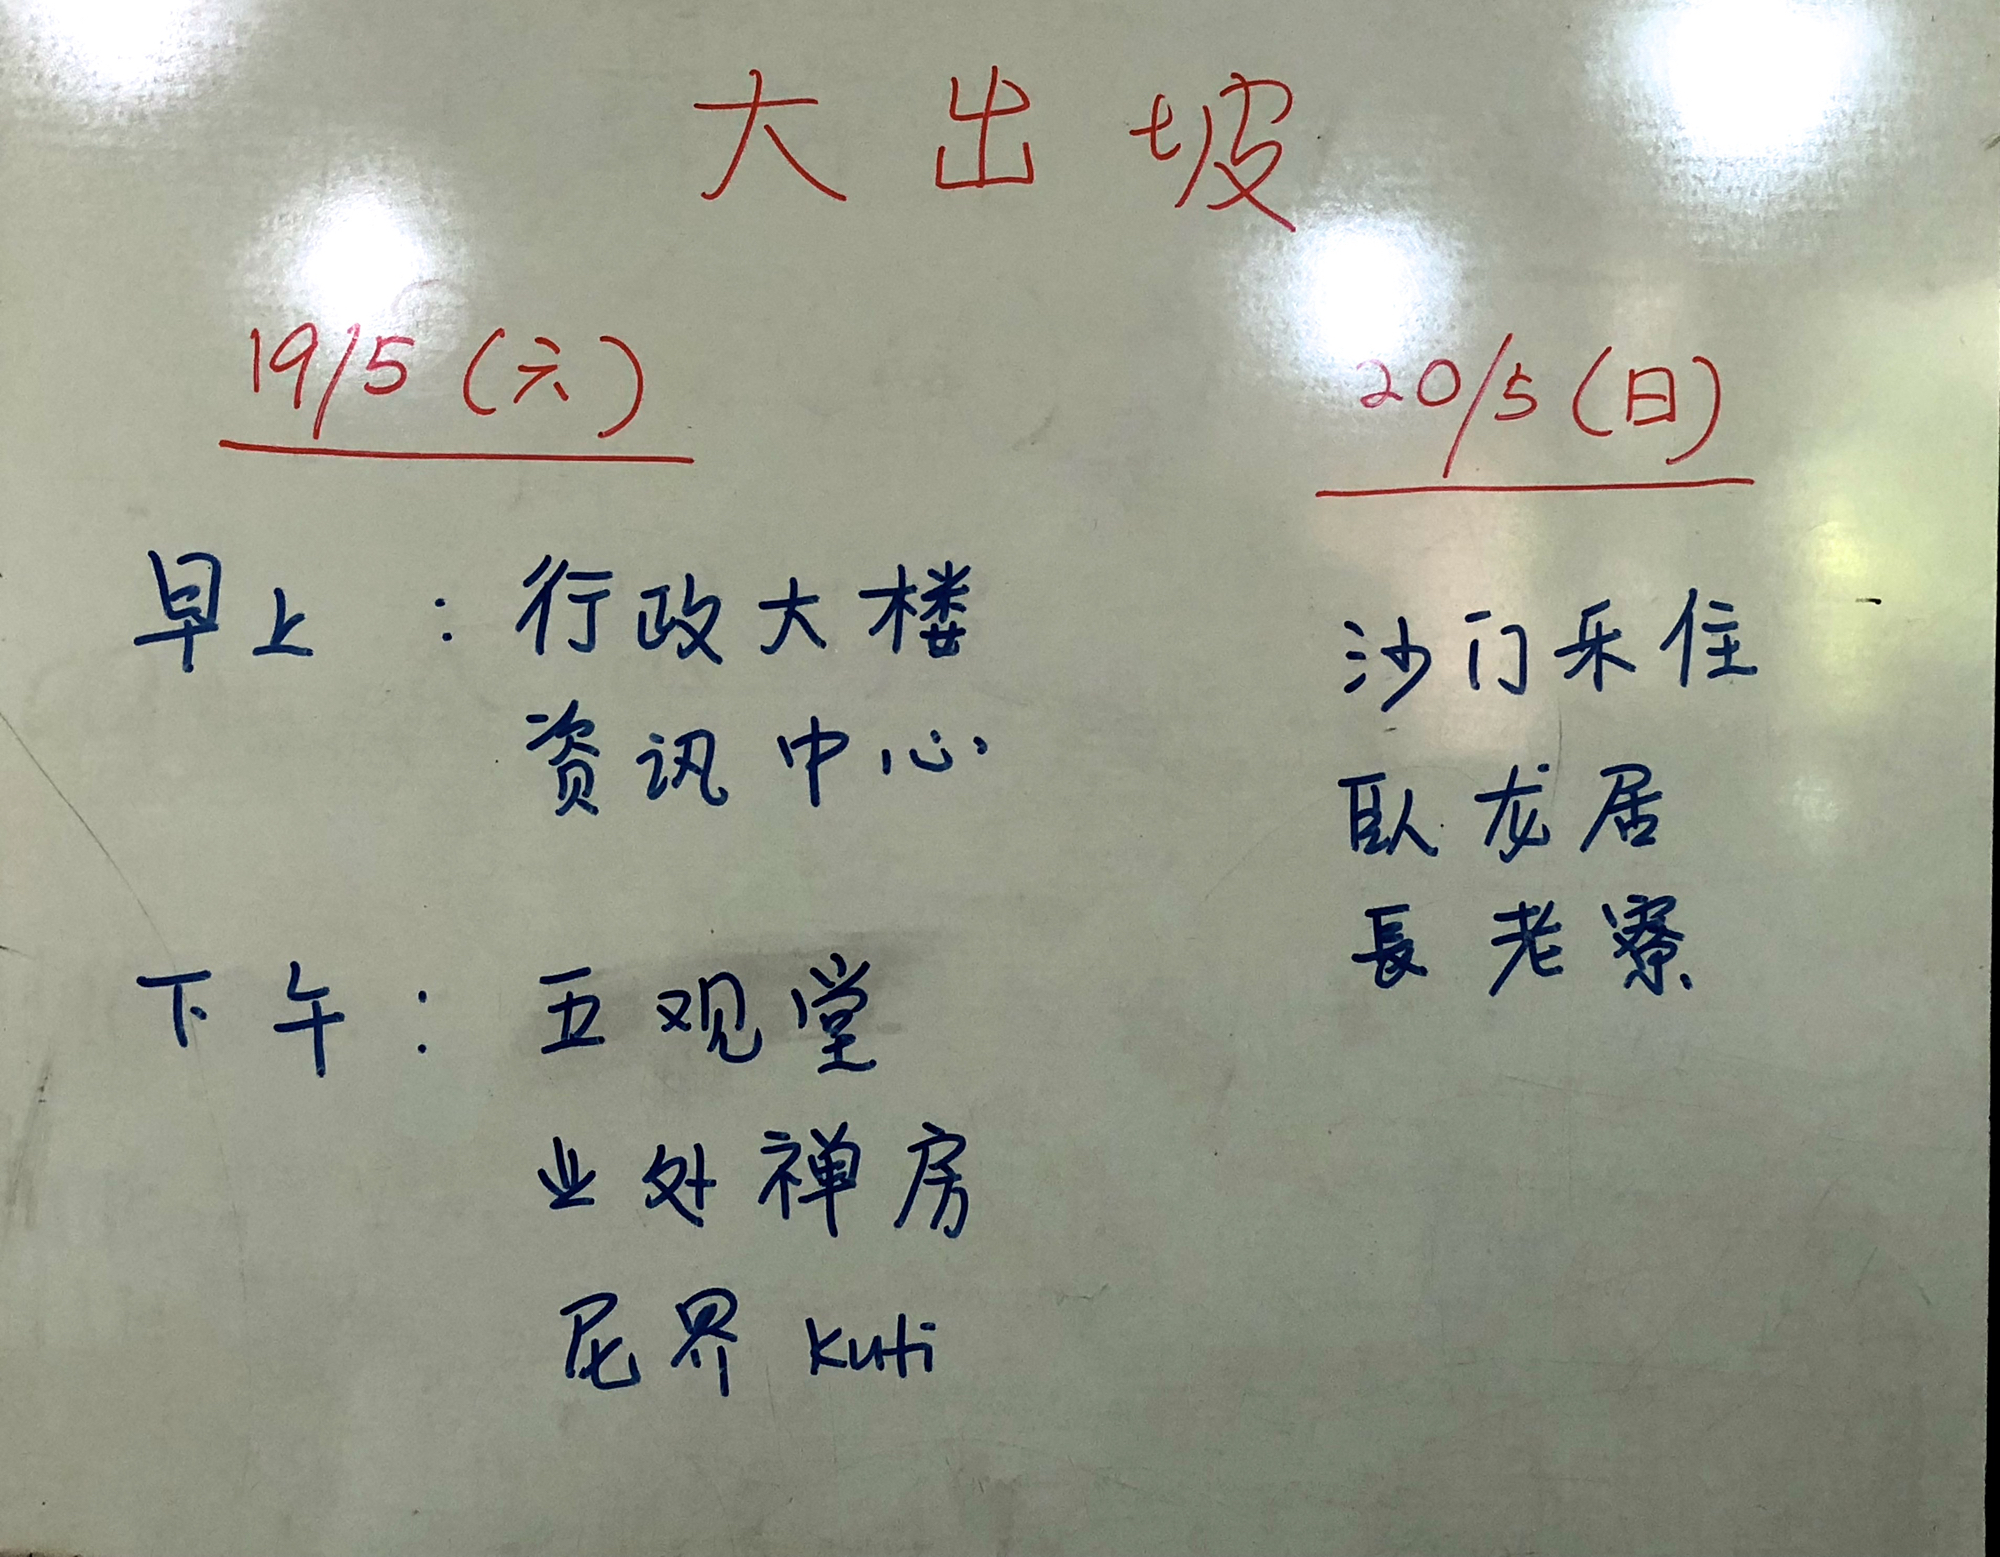 大出坡
19/5 (六)
早上 : 行政大楼
资讯中心
下午 : 五观堂
业处禅房
尼界 Kuti
20/5 (日)
沙门乐住
臥龙居
長老寮